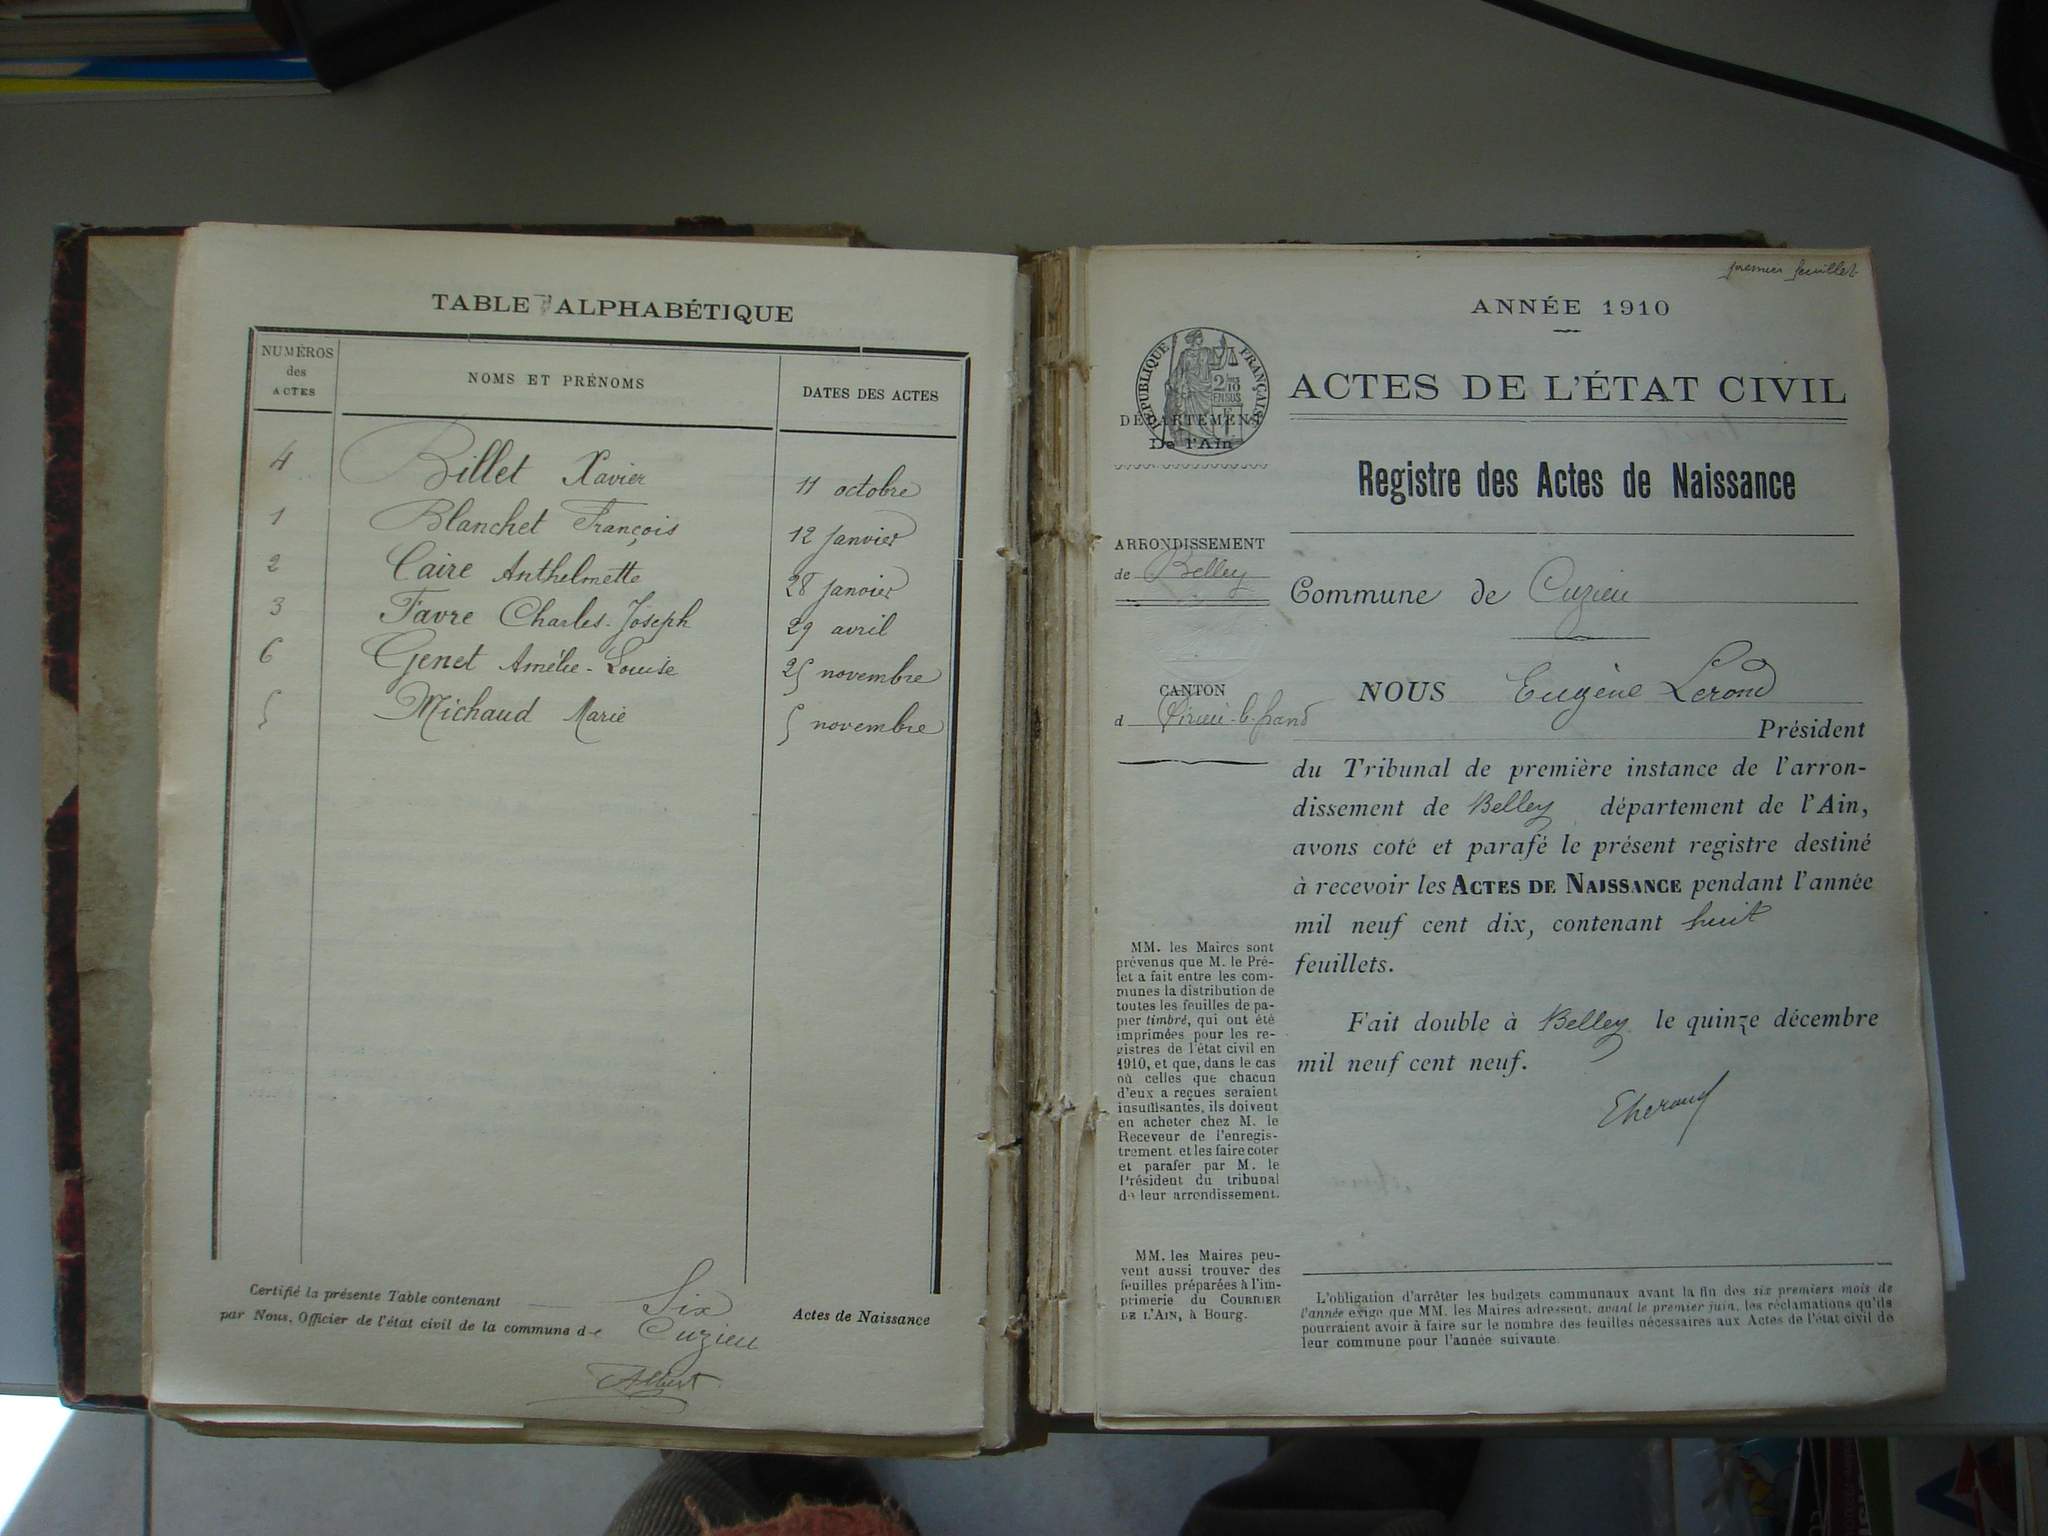 TABLE ALPHABÉTIQUE
NUMÉROS
des
ACTES
NOMS ET PRÉNOMS
DATES DES ACTES
4 Billet Xavier 11 octobre
1 Blanchet François 12 janvier
2 Caire Anthelmette 28 janvier
3 Favre Charles-Joseph 29 avril
6 Genet Amélie-Louise 25 novembre
5 Michaud Marie 5 novembre
Certifié la présente Table contenant Six Actes de Naissance
par Nous, Officier de l'état civil de la commune de Cuzieu
Albert
premier feuillet
ANNÉE 1910
RÉPUBLIQUE FRANÇAISE
DÉPARTEMENT
De l'Ain
ACTES DE L'ÉTAT CIVIL
Registre des Actes de Naissance
ARRONDISSEMENT
de Belley
Commune de Cuzieu
CANTON
d Virieu-le-grand
NOUS Eugène
Président
du Tribunal de première instance de l'arron-
dissement de Belley département de l'Ain,
avons coté et parafé le présent registre destiné
à recevoir les ACTES DE NAISSANCE pendant l'année
mil neuf cent dix, contenant huit
feuillets.
Fait double à Belley le quinze décembre
mil neuf cent neuf.
MM. les Maires sont
prévenus que M. le Pré-
fet a fait entre les com-
munes la distribution de
toutes les feuilles de pa-
pier timbré, qui ont été
imprimées pour les re-
gistres de l'état civil en
1910, et que, dans le cas
où celles que chacun
d'eux a reçues seraient
insuffisantes, ils doivent
en acheter chez M. le
Receveur de l'enregis-
trement et les faire coter
et parafer par M. le
Président du tribunal
de leur arrondissement.
MM. les Maires peu-
vent aussi trouver des
feuilles préparées à l'im-
primerie du COURRIER
DE L'AIN, à Bourg.
L'obligation d'arrêter les budgets communaux avant la fin des six premiers mois de
l'année exige que MM. les Maires adressent, avant le premier juin, les réclamations qu'ils
pourraient avoir à faire sur le nombre des feuilles nécessaires aux Actes de l'état civil de
leur commune pour l'année suivante.